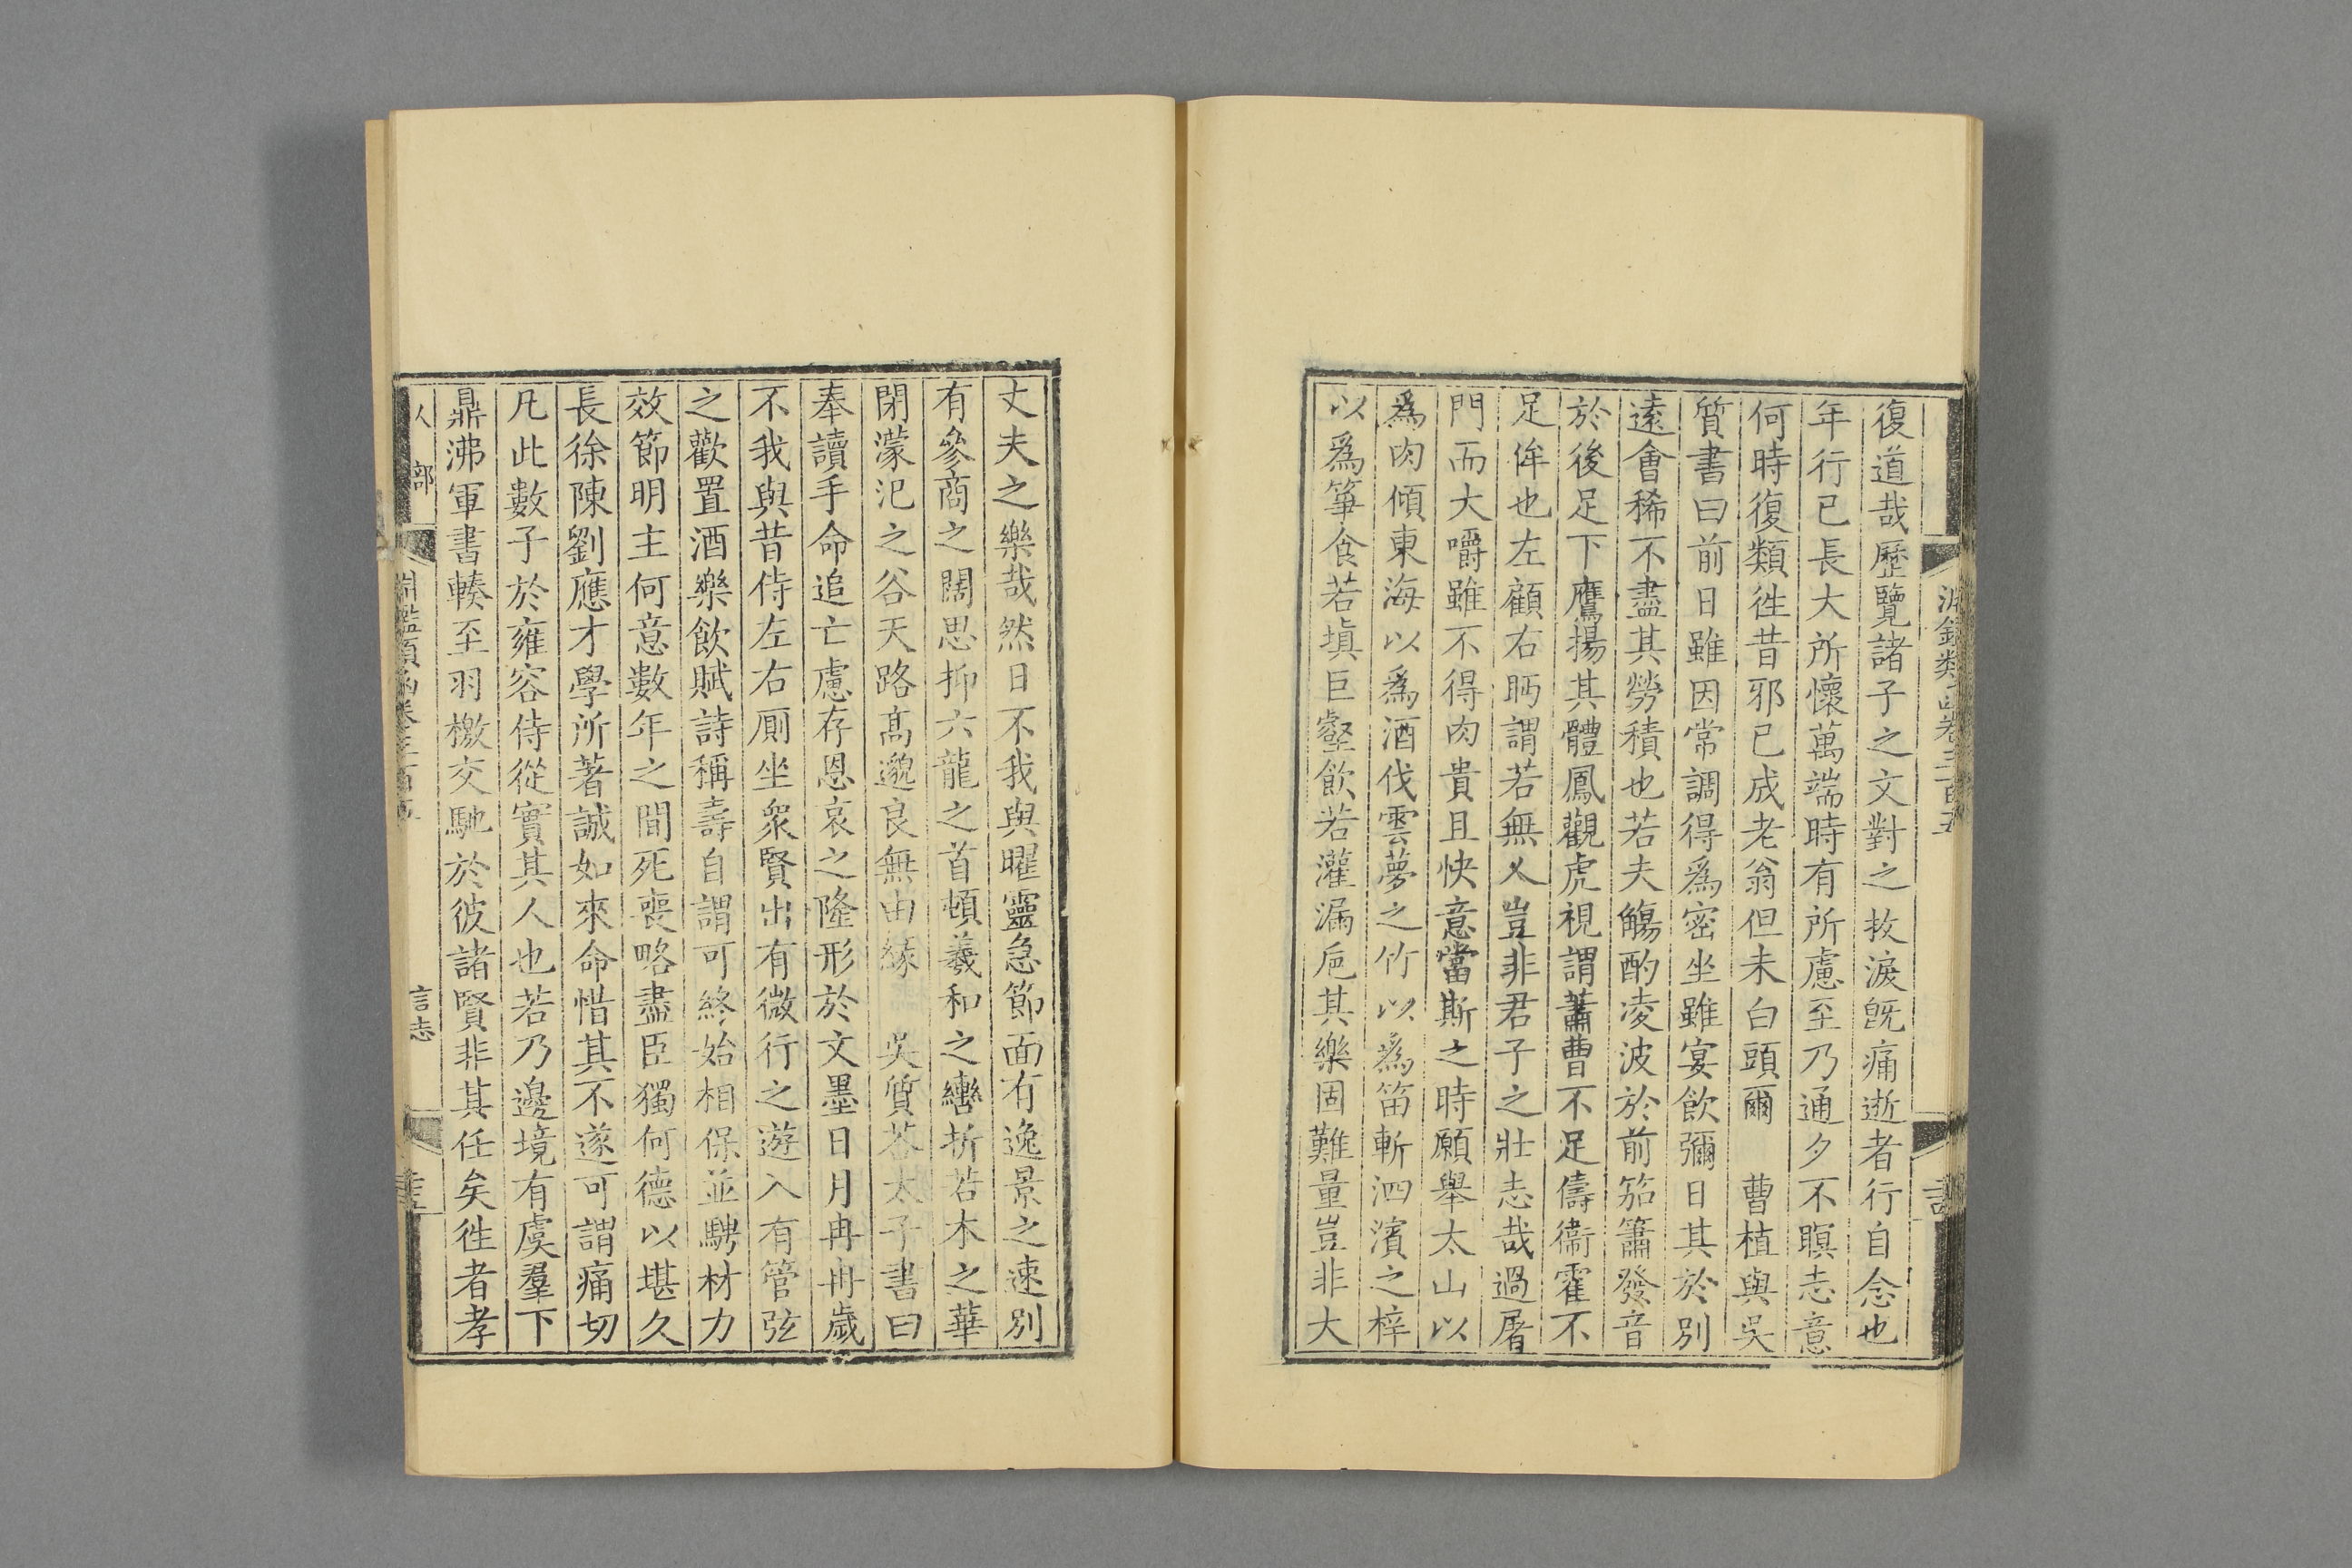 復道哉歷覽諸子之文對之抆淚旣痛逝者行自念也
年行已長大所懷萬端時有所慮至乃通夕不瞑志意
何時復類徃昔邪已成老翁但未白頭爾　曹植與吳
質書曰前日雖因常調得爲密坐雖宴飲彌日其於別
遠會稀不盡其勞積也若夫觴酌凌波於前笳簫發音
於後足下鷹揚其體鳳觀虎視謂蕭曹不足儔衞霍不
足侔也左顧右眄謂若無人豈非君子之壯志哉過屠
門而大嚼雖不得肉貴且快意當斯之時願舉太山以
爲肉傾東海以爲酒伐雲夢之竹以爲笛斬泗濱之梓
以爲箏食若塡巨壑飲若灌漏巵其樂固難量豈非大
丈夫之樂哉然日不我與曜靈急節面有逸景之速別
有參商之闊思抑六龍之首頓羲和之轡折若木之華
閉濛汜之谷天路髙邈良無由緣　吳質荅太子書曰
奉讀手命追亡慮存恩哀之隆形於文墨日月冉冉歲
不我與昔侍左右厠坐衆賢出有微行之遊入有管弦
之歡置酒樂飲賦詩稱壽自謂可終始相保並騁材力
效節明主何意數年之間死喪略盡臣獨何德以堪久
長徐陳劉應才學所著誠如來命惜其不遂可謂痛切
凡此數子於雍容侍從實其人也若乃邊境有虞羣下
鼎沸軍書輳至羽檄交馳於彼諸賢非其任矣徃者孝
人　部
淵鑑類函卷三百五
言志